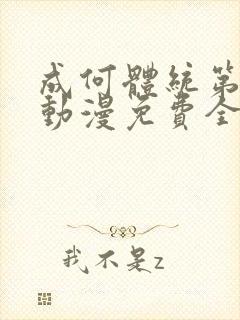 成何體統第
動漫免費全
我不是z